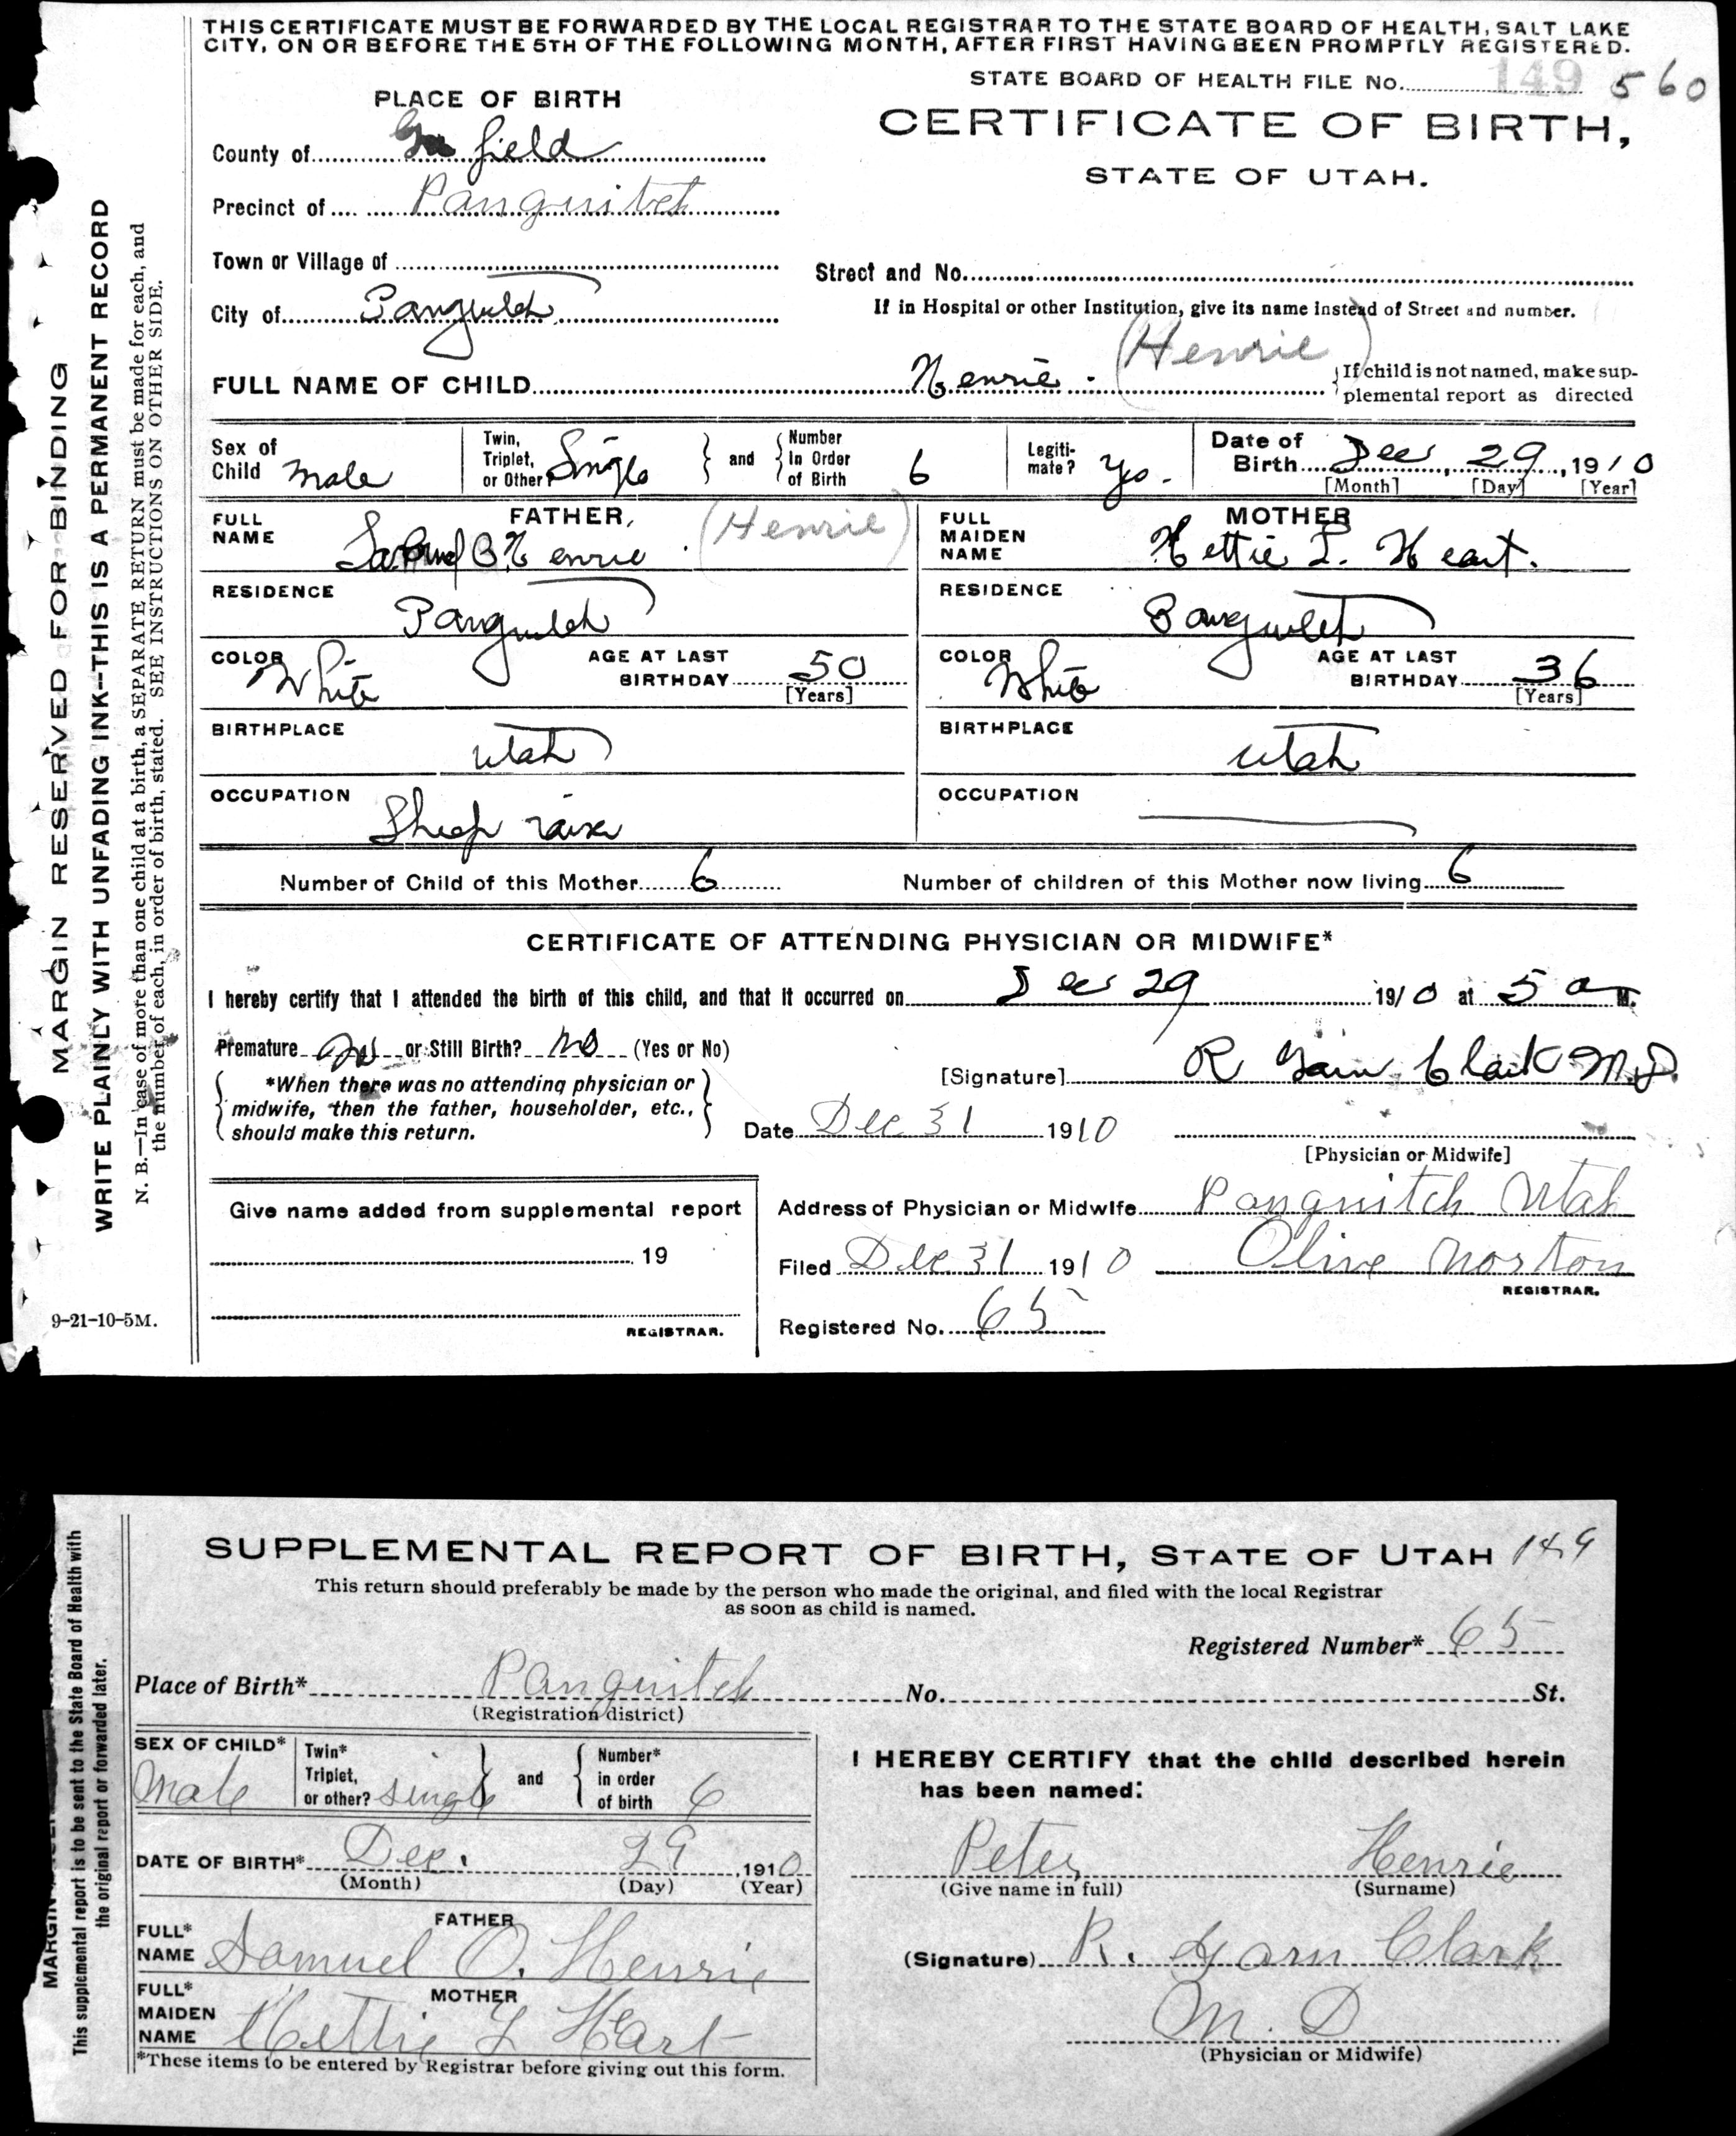 THIS CERTIFICATE MUST BE FORWARDED BY THE LOCAL REGISTRAR TO THE STATE BOARD OF HEALTH, SALT LAKE
CITY, ON OR BEFORE THE 5TH OF THE FOLLOWING MONTH, AFTER FIRST HAVING BEEN PROMPTLY REGISTERED.
STATE BOARD OF HEALTH FILE No. 149 560
PLACE OF BIRTH
CERTIFICATE OF BIRTH,
STATE OF UTAH.
County of field
Precinct of Panguitch
Town or Village of
Street and No.
City of Panguitch
If in Hospital or other Institution, give its name instead of Street and number.
FULL NAME OF CHILD Henrie (Henrie)
If child is not named, make sup-
plemental report as directed
Sex of Child Male
Twin, Triplet, or Other? Single
and
Number In Order of Birth 6
Legiti-mate? Yes.
Date of Birth Dec, 29, 1910
[Month] [Day] [Year]
FATHER
FULL NAME B. Henrie (Henrie)
RESIDENCE Panguitch
COLOR White
AGE AT LAST BIRTHDAY 50 [Years]
BIRTHPLACE Utah
OCCUPATION Sheep raiser
MOTHER
FULL MAIDEN NAME Hettie L. Heart.
RESIDENCE Panguitch
COLOR White
AGE AT LAST BIRTHDAY 36 [Years]
BIRTHPLACE Utah
OCCUPATION
Number of Child of this Mother 6
Number of children of this Mother now living 6
CERTIFICATE OF ATTENDING PHYSICIAN OR MIDWIFE*
I hereby certify that I attended the birth of this child, and that it occurred on Dec 29 1910 at 5 a M.
Premature No or Still Birth? No (Yes or No)
*When there was no attending physician or
midwife, then the father, householder, etc.,
should make this return.
[Signature] R Garn Clark M.D.
Date Dec 31 1910
[Physician or Midwife]
Give name added from supplemental report
19
REGISTRAR.
Address of Physician or Midwife Panguitch Utah
Filed Dec 31 1910 Olive Norton
REGISTRAR.
Registered No. 65
MARGIN RESERVED FOR BINDING
WRITE PLAINLY WITH UNFADING INK--THIS IS A PERMANENT RECORD
N. B.—In case of more than one child at a birth, a SEPARATE RETURN must be made for each, and
the number of each, in order of birth, stated. SEE INSTRUCTIONS ON OTHER SIDE.
9-21-10-5M.
SUPPLEMENTAL REPORT OF BIRTH, STATE OF UTAH 149
This return should preferably be made by the person who made the original, and filed with the local Registrar
as soon as child is named.
Registered Number* 65
Place of Birth* Panguitch No. St.
(Registration district)
SEX OF CHILD* Male
Twin* Triplet, or other? single
and
Number* in order of birth 6
DATE OF BIRTH* Dec. 29, 1910
(Month) (Day) (Year)
FATHER
FULL* NAME Samuel O. Henrie
MOTHER
FULL* MAIDEN NAME Hettie L Hart
*These items to be entered by Registrar before giving out this form.
I HEREBY CERTIFY that the child described herein
has been named:
Peter Henrie
(Give name in full) (Surname)
(Signature) R. Garn Clark
M. D
(Physician or Midwife)
This supplemental report is to be sent to the State Board of Health with
the original report or forwarded later.